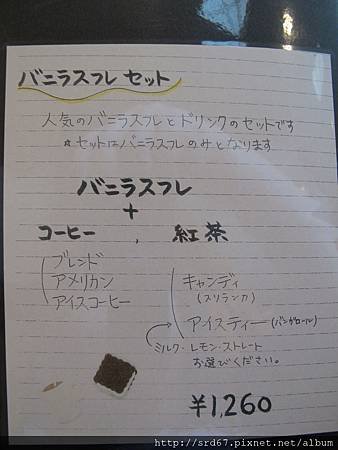 バニラスフレ セット
人気のバニラスフレとドリンクのセットです
☆セットはバニラスフレのみとなります
バニラスフレ
+
コーヒー , 紅茶
ブレンド
アメリカン
アイスコーヒー
キャンディ
(スリランカ)
アイスティー(バンガロール)
ミルク・レモン・ストレート
お選びください。
¥1,260
http://srd67.pixnet.net/album